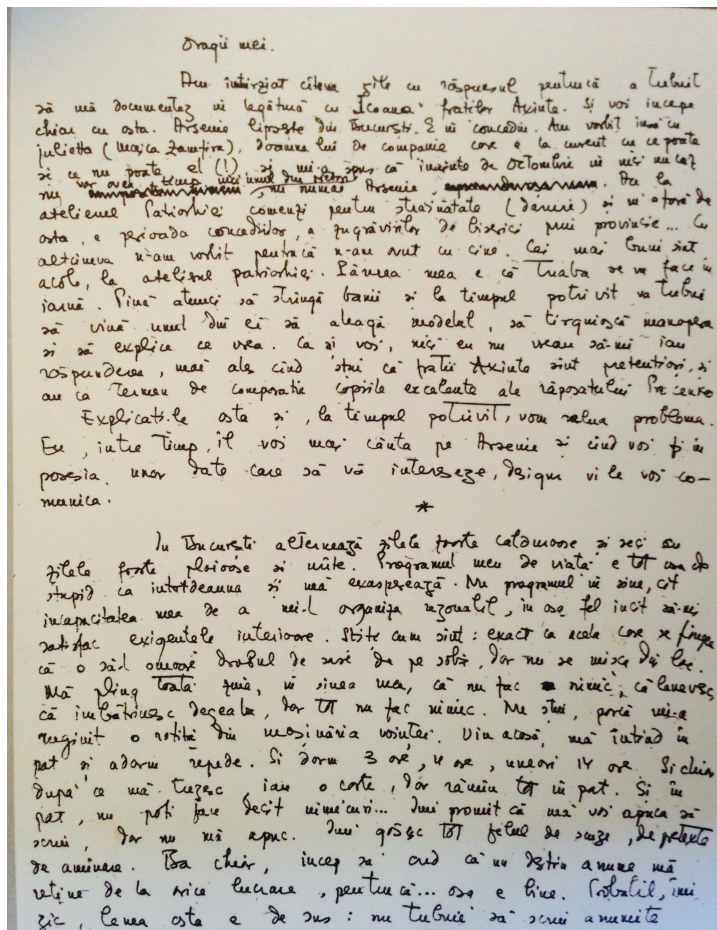 Dragii mei.
Am întîrziat cîteva zile cu răspunsul pentrucă a trebuit
să mă documentez în legătură cu "Icoana" fraților Axinte. Și voi începe
chiar cu asta. Arsenie lipsește din București. E în concediu. Am vorbit însă cu
julietta (Maica Zamfira), doamna lui de companie care e la curent cu ce poate
și ce nu poate el (!) și mi-a spus că înainte de Octombrie în nici un caz
nu vor avea timp nici unul din nu numai Arsenie Au la
atelierul Patriarhiei comenzi pentru străinătate (dànuie) și în afară de
asta, e perioada concediilor, a zugrăvirilor de biserici prin provincie... Cu
altcineva n-am vorbit pentrucă n-am avut cu cine. Cei mai buni sînt
acolo, la atelierul patriarhiei. Părerea mea e că treaba se va face în
iarnă. Pînă atunci să strîngă banii și la timpul potrivit va trebui
să vină unul din ei să aleagă modelul, să tîrguiască manopera
și să explice ce vrea. Ca și voi, nici eu nu vreau să-mi iau
răspunderea, mai ales cînd știu că frații Axinte sînt pretențioși, și
au ca termen de comparație copiile excelente ale răposatului
Explicați-le asta și, la timpul potrivit, vom relua problema.
Eu, între timp, îl voi mai căuta pe Arsenie și cînd voi fi în
posesia unor date care să vă intereseze, desigur vi le voi co-
munica.
*
În București alternează zilele foarte călduroase și seci cu
zilele foarte ploioase și urîte. Programul meu de viață e tot așa de
stupid ca întotdeauna și mă exasperează. Nu programul în sine, cît
incapacitatea mea de a mi-l organiza rezonabil, în așa fel încît să-mi
satisfac exigențele interioare. Știți cum sînt: exact ca acela care se plînge
că o să-l omoare drobul de sare de pe sobă, dar nu se mișcă din loc.
Mă plîng toată ziua, în sinea mea, că nu fac nimic, că lenevesc,
că îmbătrînesc degeaba, dar tot nu fac nimic. Nu știu, parcă mi-a
ruginit o rotiță din mașinăria voinței. Vin acasă, mă întind în
pat și adorm repede. Și dorm 3 ore, 4 ore, uneori 14 ore. Și chiar
după ce mă trezesc, iau o carte, dar rămîn tot în pat. Și în
pat, nu poți face decît nimicuri... Îmi promit că mă voi apuca să
scriu, dar nu mă apuc. Îmi găsesc tot felul de scuze, de pretexte
de amînare. Ba chiar, încep să cred că un destin anume mă
reține de la orice lucrare, pentrucă... așa e bine. Probabil, îmi
zic, lenea asta e de sus: nu trebuie să scriu anumite